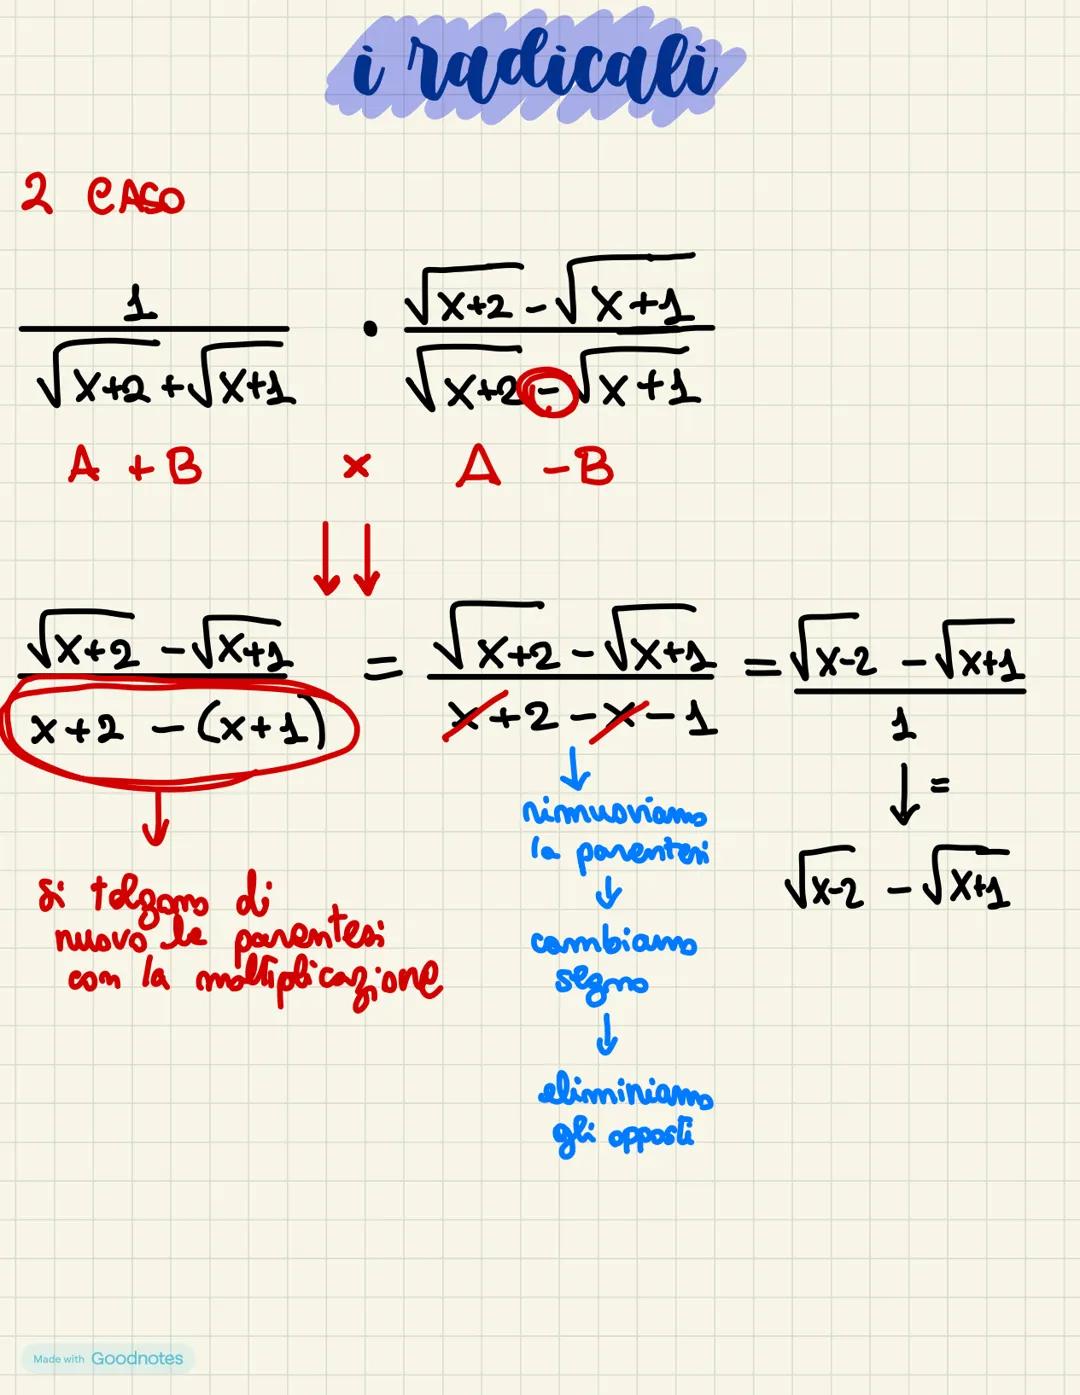 i radicali
2 CASO
1 / (√x+2 + √x+1) · (√x+2 - √x+1) / (√x+2 - √x+1)
A + B × A - B
(√x+2 - √x+1) / (x+2 - (x+1)) = (√x+2 - √x+1) / (x+2 - x - 1) = (√x-2 - √x+1) / 1
↓ =
√x-2 - √x+1
si tolgono di
nuovo le parentesi
con la moltiplicazione
rimuoviamo
la parentesi
cambiamo
segno
eliminiamo
gli opposti
Made with Goodnotes